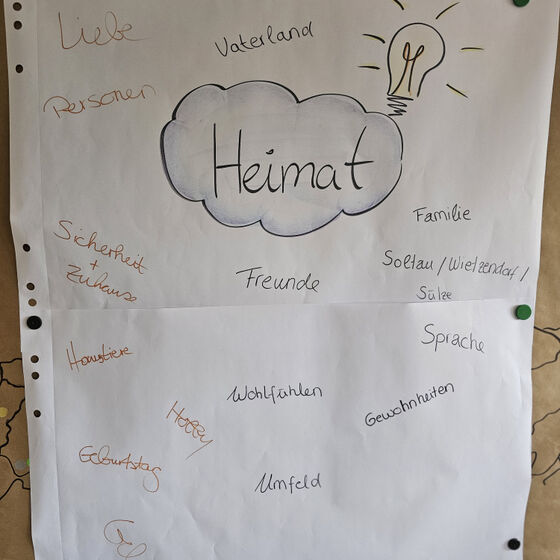 Liebe
Vaterland
Personen
Heimat
Familie
Sicherheit
+
Zuhause
Freunde
Soltau / Wietzendorf /
Sülze
Haustiere
Sprache
Wohlfühlen
Gewohnheiten
Hobby
Geburtstag
Umfeld